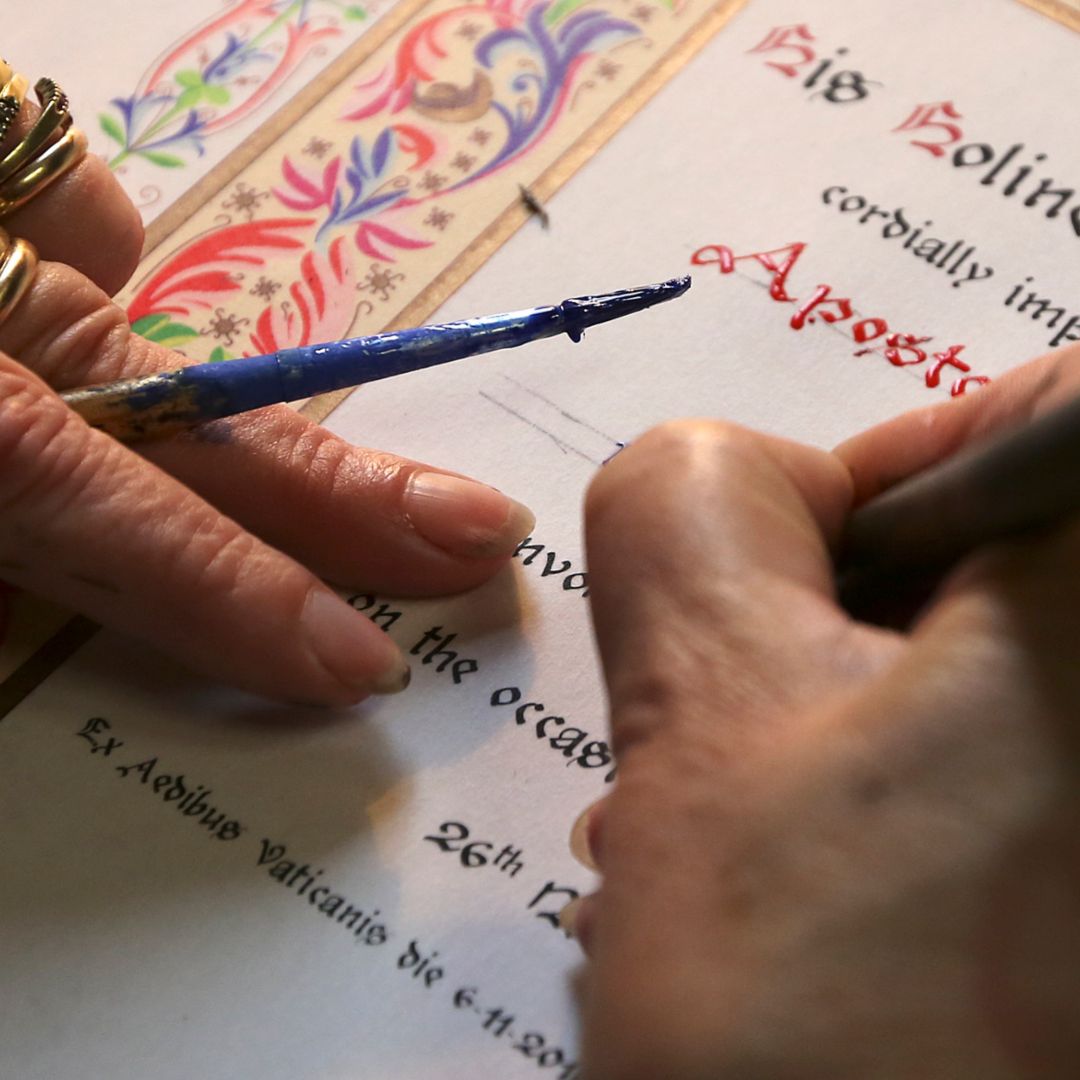 His Holine
cordially imp
Aposto
nvo
on the occas
26th
Ex Aedibus Vaticanis die 6-11-20